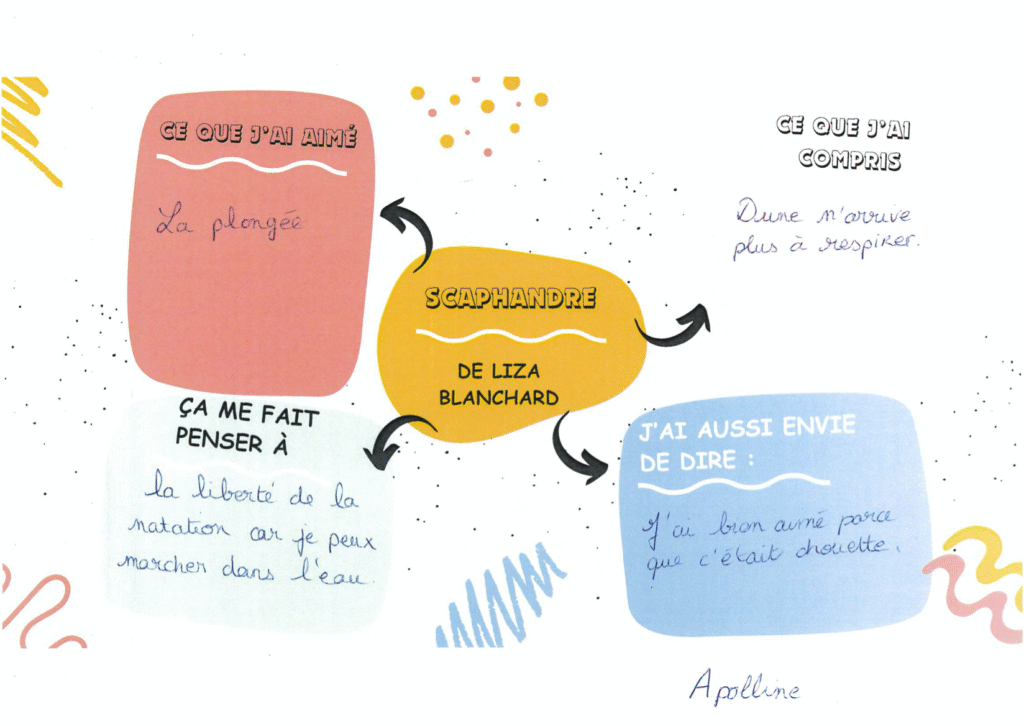 CE QUE J'AI AIMÉ
La plongée
CE QUE J'AI
COMPRIS
Dune n'arrive
plus à respirer.
SCAPHANDRE
DE LIZA
BLANCHARD
ÇA ME FAIT
PENSER À
la liberté de la
natation car je peux
marcher dans l'eau.
J'AI AUSSI ENVIE
DE DIRE :
J'ai bien aimé parce
que c'était chouette.
Apolline